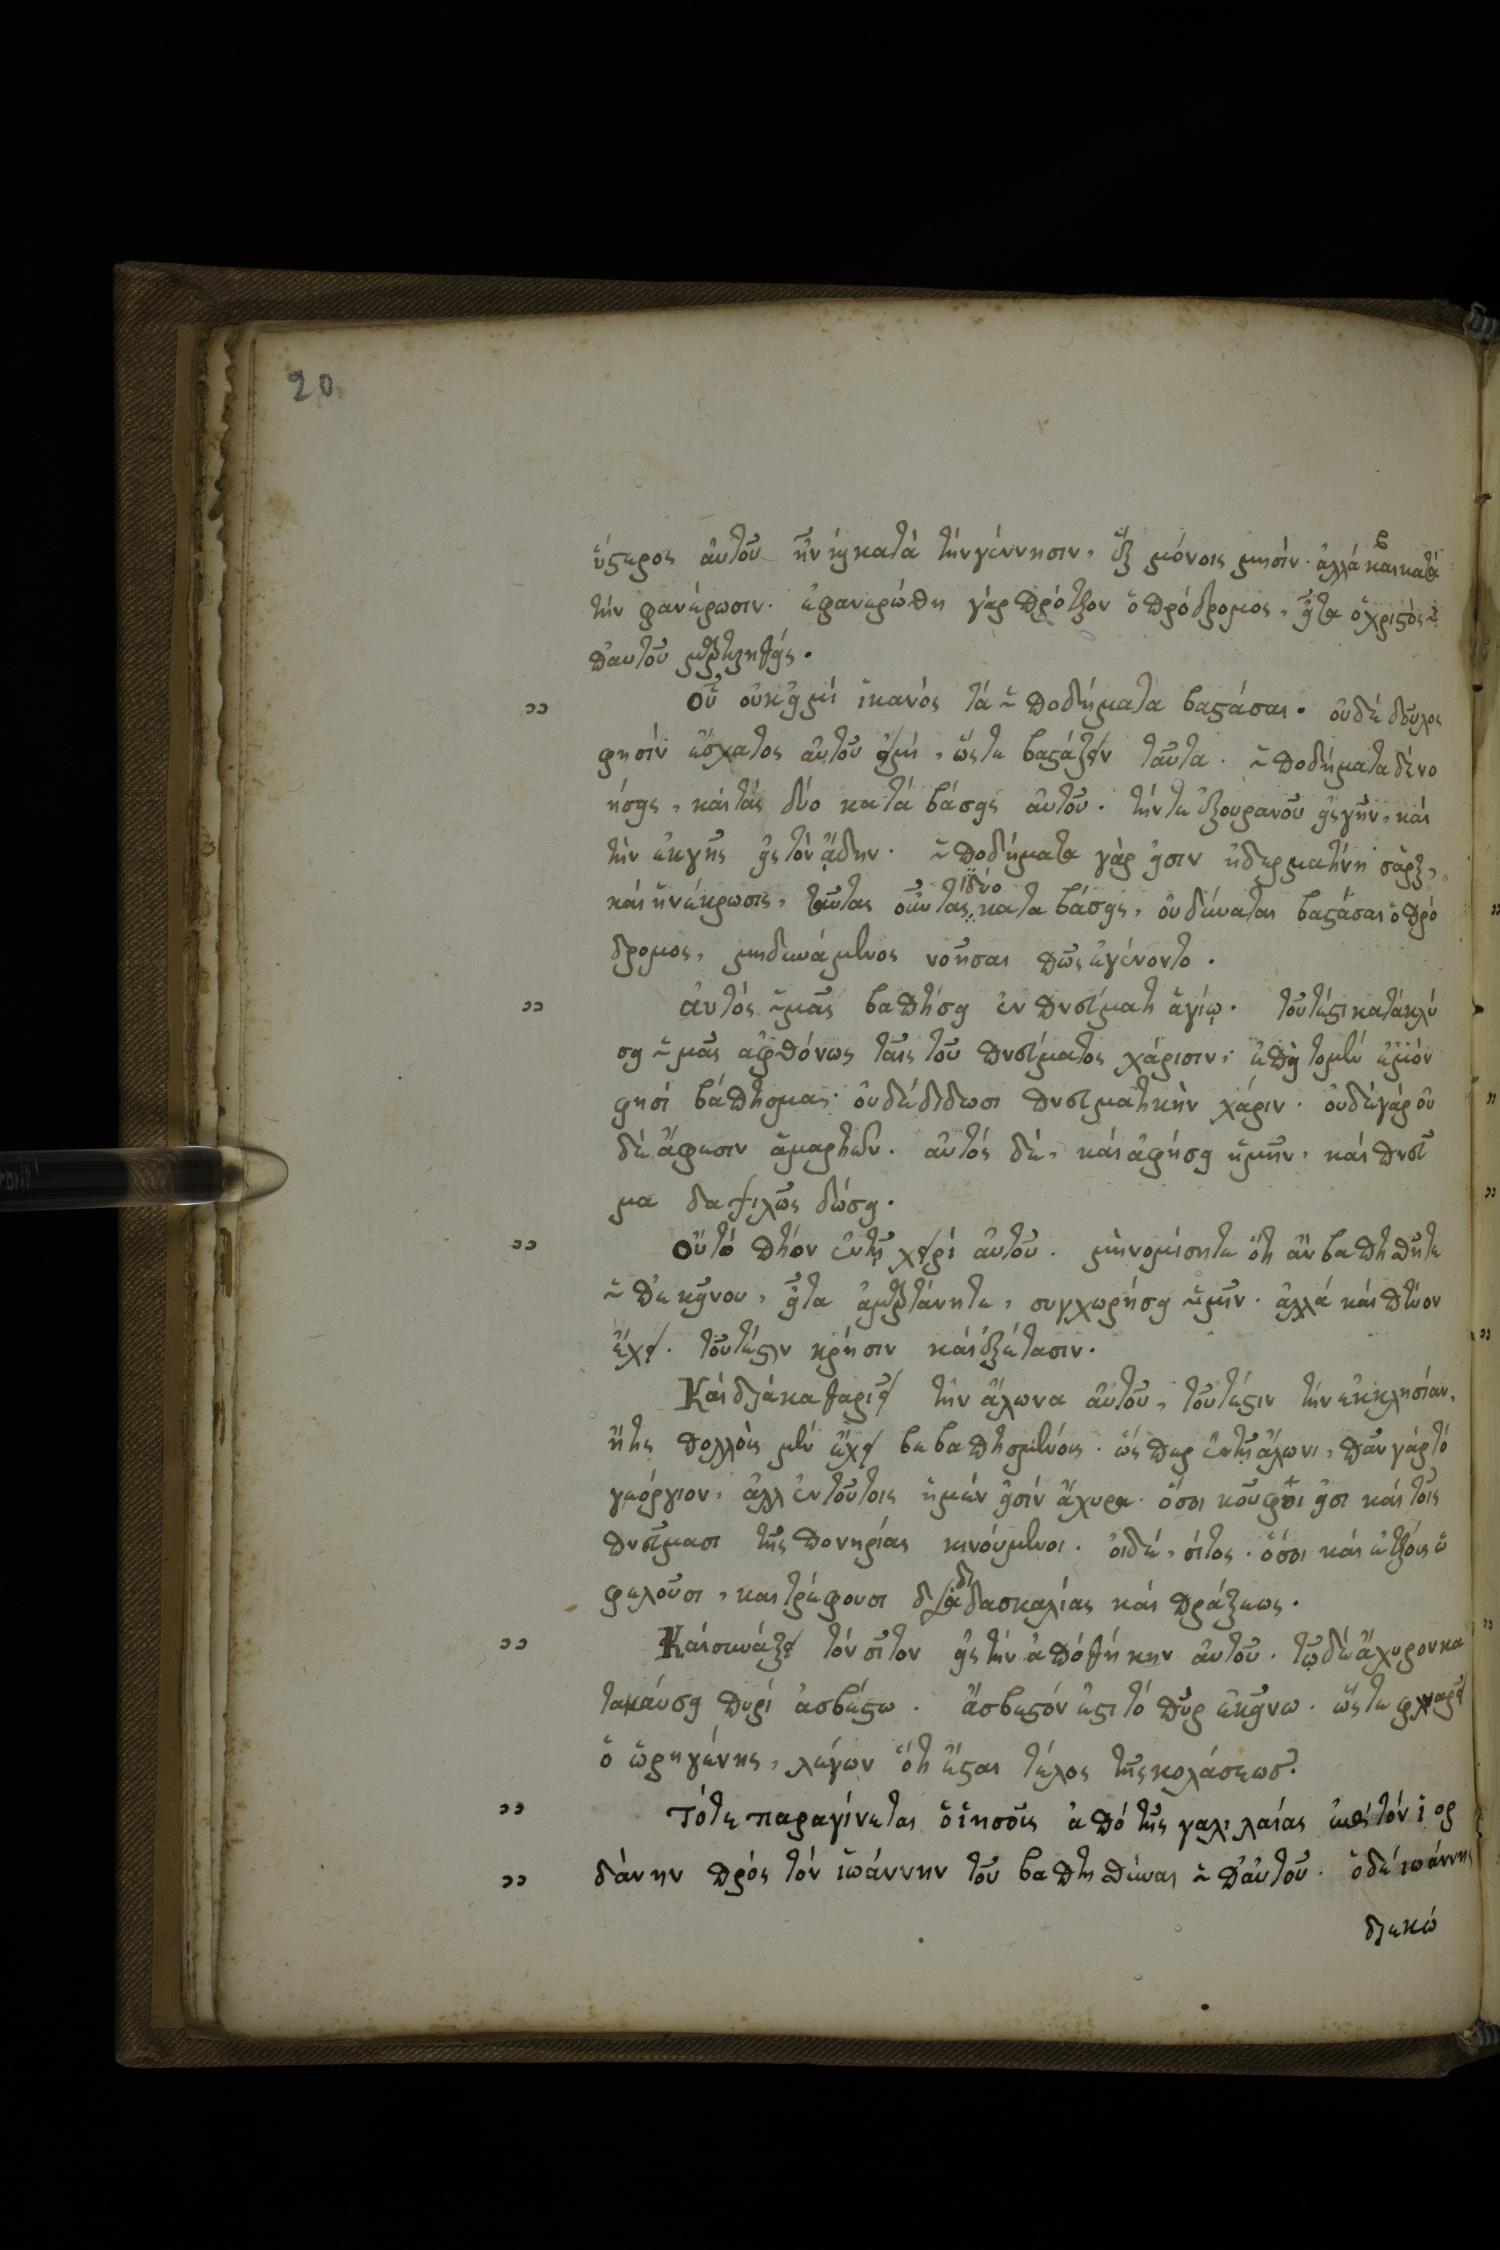 20
ὕστερος αὐτοῦ ἦν ἐκ κατὰ τὴν γέννησιν, ἓξ μόνοις μησίν. ἀλλὰ καὶ κατὰ
τὴν φανέρωσιν. ἐφανερώθη γὰρ πρότερον ὁ πρόδρομος, εἶτα ὁ χριστὸς ὑ
π' αὐτοῦ μαρτυρηθείς.
οὗ οὐκ εἰμὶ ἱκανὸς τὰ ὑποδήματα βαστάσαι. οὐδὲ δοῦλος
φησὶν ἔσχατος αὐτοῦ εἰμὶ, ὥστε βαστάζειν ταῦτα. ὑποδήματα δὲ νο
ήσεις, καὶ τὰς δύο καταβάσεις αὐτοῦ. τήν τε ἐξ οὐρανοῦ εἰς γῆν, καὶ
τὴν ἐκ γῆς εἰς τὸν ᾅδην. ὑποδήματα γάρ εἰσιν ἡ δερματίνη σὰρξ,
καὶ ἡ νέκρωσις, ταύτας οὖν τὰς δύο καταβάσεις, οὐ δύναται βαστάσαι ὁ πρό
δρομος, μὴ δυνάμενος νοῆσαι πῶς ἐγένοντο.
αὐτὸς ὑμᾶς βαπτίσει ἐν πνεύματι ἁγίῳ. τουτέστι κατακλύ
σει ὑμᾶς ἀφθόνως ταῖς τοῦ πνεύματος χάρισιν, ἐπεὶ τὸ μὲν ἐμὸν
φησὶ βάπτισμα, οὐδὲ δίδωσι πνευματικὴν χάριν. οὐδὲ γὰρ οὐ
δὲ ἄφεσιν ἁμαρτιῶν. αὐτὸς δὲ, καὶ ἀφήσει ὑμῖν, καὶ πνεῦ
μα δαψιλῶς δώσει.
Οὗ τὸ πτύον ἐν τῇ χειρὶ αὐτοῦ. μὴ νομίσητε ὅτι ἂν βαπτισθῆτε
ὑπ' ἐκείνου, εἶτα ἁμαρτάνητε, συγχωρήσει ὑμῖν. ἀλλὰ καὶ πτύον
ἔχει. τουτέστιν κρίσιν καὶ ἐξέτασιν.
Καὶ διακαθαριεῖ τὴν ἅλωνα αὐτοῦ, τουτέστιν τὴν ἐκκλησίαν,
ἥτις πολλοὺς μὲν ἔχει βεβαπτισμένους. ὥσπερ ἐν τῇ ἅλωνι, πᾶν γὰρ τὸ
γεώργιον, ἀλλ' ἐν τούτοις ἡ μέν εἰσιν ἄχυρα. ὅσοι κοῦφοι εἰσὶ καὶ τοῖς
πνεύμασι τῆς πονηρίας κινούμενοι. οἱ δὲ, σίτος. ὅσοι καὶ ἑτέρους ὠ
φελοῦσι, καὶ τρέφουσι διὰ διδασκαλίας καὶ πράξεως.
Καὶ συνάξει τὸν σῖτον εἰς τὴν ἀποθήκην αὐτοῦ. τὸ δὲ ἄχυρον κα
τακαύσει πυρὶ ἀσβέστω. ἄσβεστόν ἐστι τὸ πῦρ ἐκεῖνο. ὥστε φλυαρεῖ
ὁ ὠριγένης, λέγων ὅτι ἔσται τέλος τῆς κολάσεως.
Τότε παραγίνεται ὁ ἰησοῦς ἀπὸ τῆς γαλιλαίας ἐπὶ τὸν ἰορ
δάνην πρὸς τὸν ἰωάννην τοῦ βαπτισθῆναι ὑπ' αὐτοῦ. ὁ δὲ ἰωάννης
διεκώ